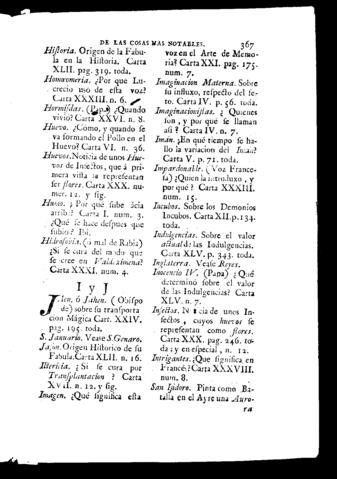 DE LAS COSAS MAS NOTABLES. 367
Historia. Origen de la Fabu-
la en la Historia. Carta
XLII. pag. 319. toda.
Homœomeria. ¿Por que Lu-
crecio usó de esta voz?
Carta XXXIII. n. 6.
Hormisdas. (Papa) ¿Quando
vivió? Carta XXVI. n. 8.
Huevo. ¿Como, y quando se
va formando el Pollo en el
Huevo? Carta VI. n. 36.
Huevos. Noticia de unos Hue-
vos de Insectos, que á pri-
mera vista la representan
ser flores. Carta XXX. nu-
mer. 12. y sig.
Humo. ¿Por qué sube ácia
arriba? Carta I. num. 3.
¿Qué se hace despues que
subió? Ibi.
Hidrofobia. (ó mal de Rabia)
¿Si se cura del modo que
se cree en Valdeximena?
Carta XXXI. num. 4.
I y J
Jalen, ó Jahen. (Obispo
de) sobre su transporta
cion Mágica Cart. XXIV.
pag. 195. toda.
S. Januario. Vease S. Genaro.
Jasón. Origen Historico de su
Fabula. Carta XLII. n. 16.
Ictericia. ¿Si se cura por
Transplantacion? Carta
XVII. n. 12. y sig.
Imagen. ¿Qué significa esta
voz en el Arte de Memo-
ria? Carta XXI. pag. 175.
num. 7.
Imaginacion Materna. Sobre
su influxo, respecto del fe-
to. Carta IV. p. 56. toda.
Imaginacionistas. ¿Quienes
son, y por qué se llaman
asi? Carta IV. n. 7.
Imán. ¿En qué tiempo se ha-
lló la variacion del Imán?
Carta V. p. 71. toda.
Impardonable. (Voz France-
sa) ¿Quien la introduxo, y
por qué? Carta XXXIII.
num. 15.
Incubos. Sobre los Demonios
Incubos. Carta XII. p. 134.
toda.
Indulgencias. Sobre el valor
actual de las Indulgencias.
Carta XLV. p. 343. toda.
Inglaterra. Vease Reyes.
Inocencio IV. (Papa) ¿Qué
determinó sobre el valor
de las Indulgencias? Carta
XLV. n. 7.
Insectos. Noticia de unos In-
sectos, cuyos huevos se
representan como flores.
Carta XXX. pag. 246. to-
da; y en especial, n. 12.
Intrigantes. ¿Que significa en
Francés? Carta XXXVIII.
num. 8.
San Isidoro. Pinta como Ba-
talla en el Ayre una Auro-
ra